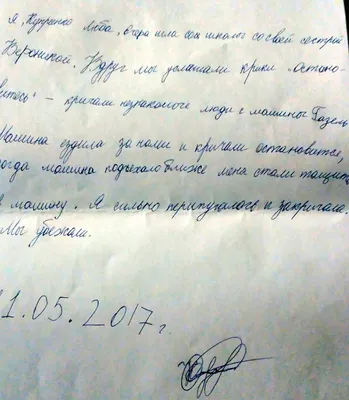 Я, Куприенко Люба, вчера шла со школы со своей сестрой
Вероникой. Вдруг мы услышали крики "Остано-
витесь" - кричали незнакомые люди с машины Газель
Машина ездила за нами и кричали остановитесь,
огда машина подъехало ближе меня стали тащить
в машину. Я сильно перипугалась и закричала.
Мы убежали.
1.05.2017 г.